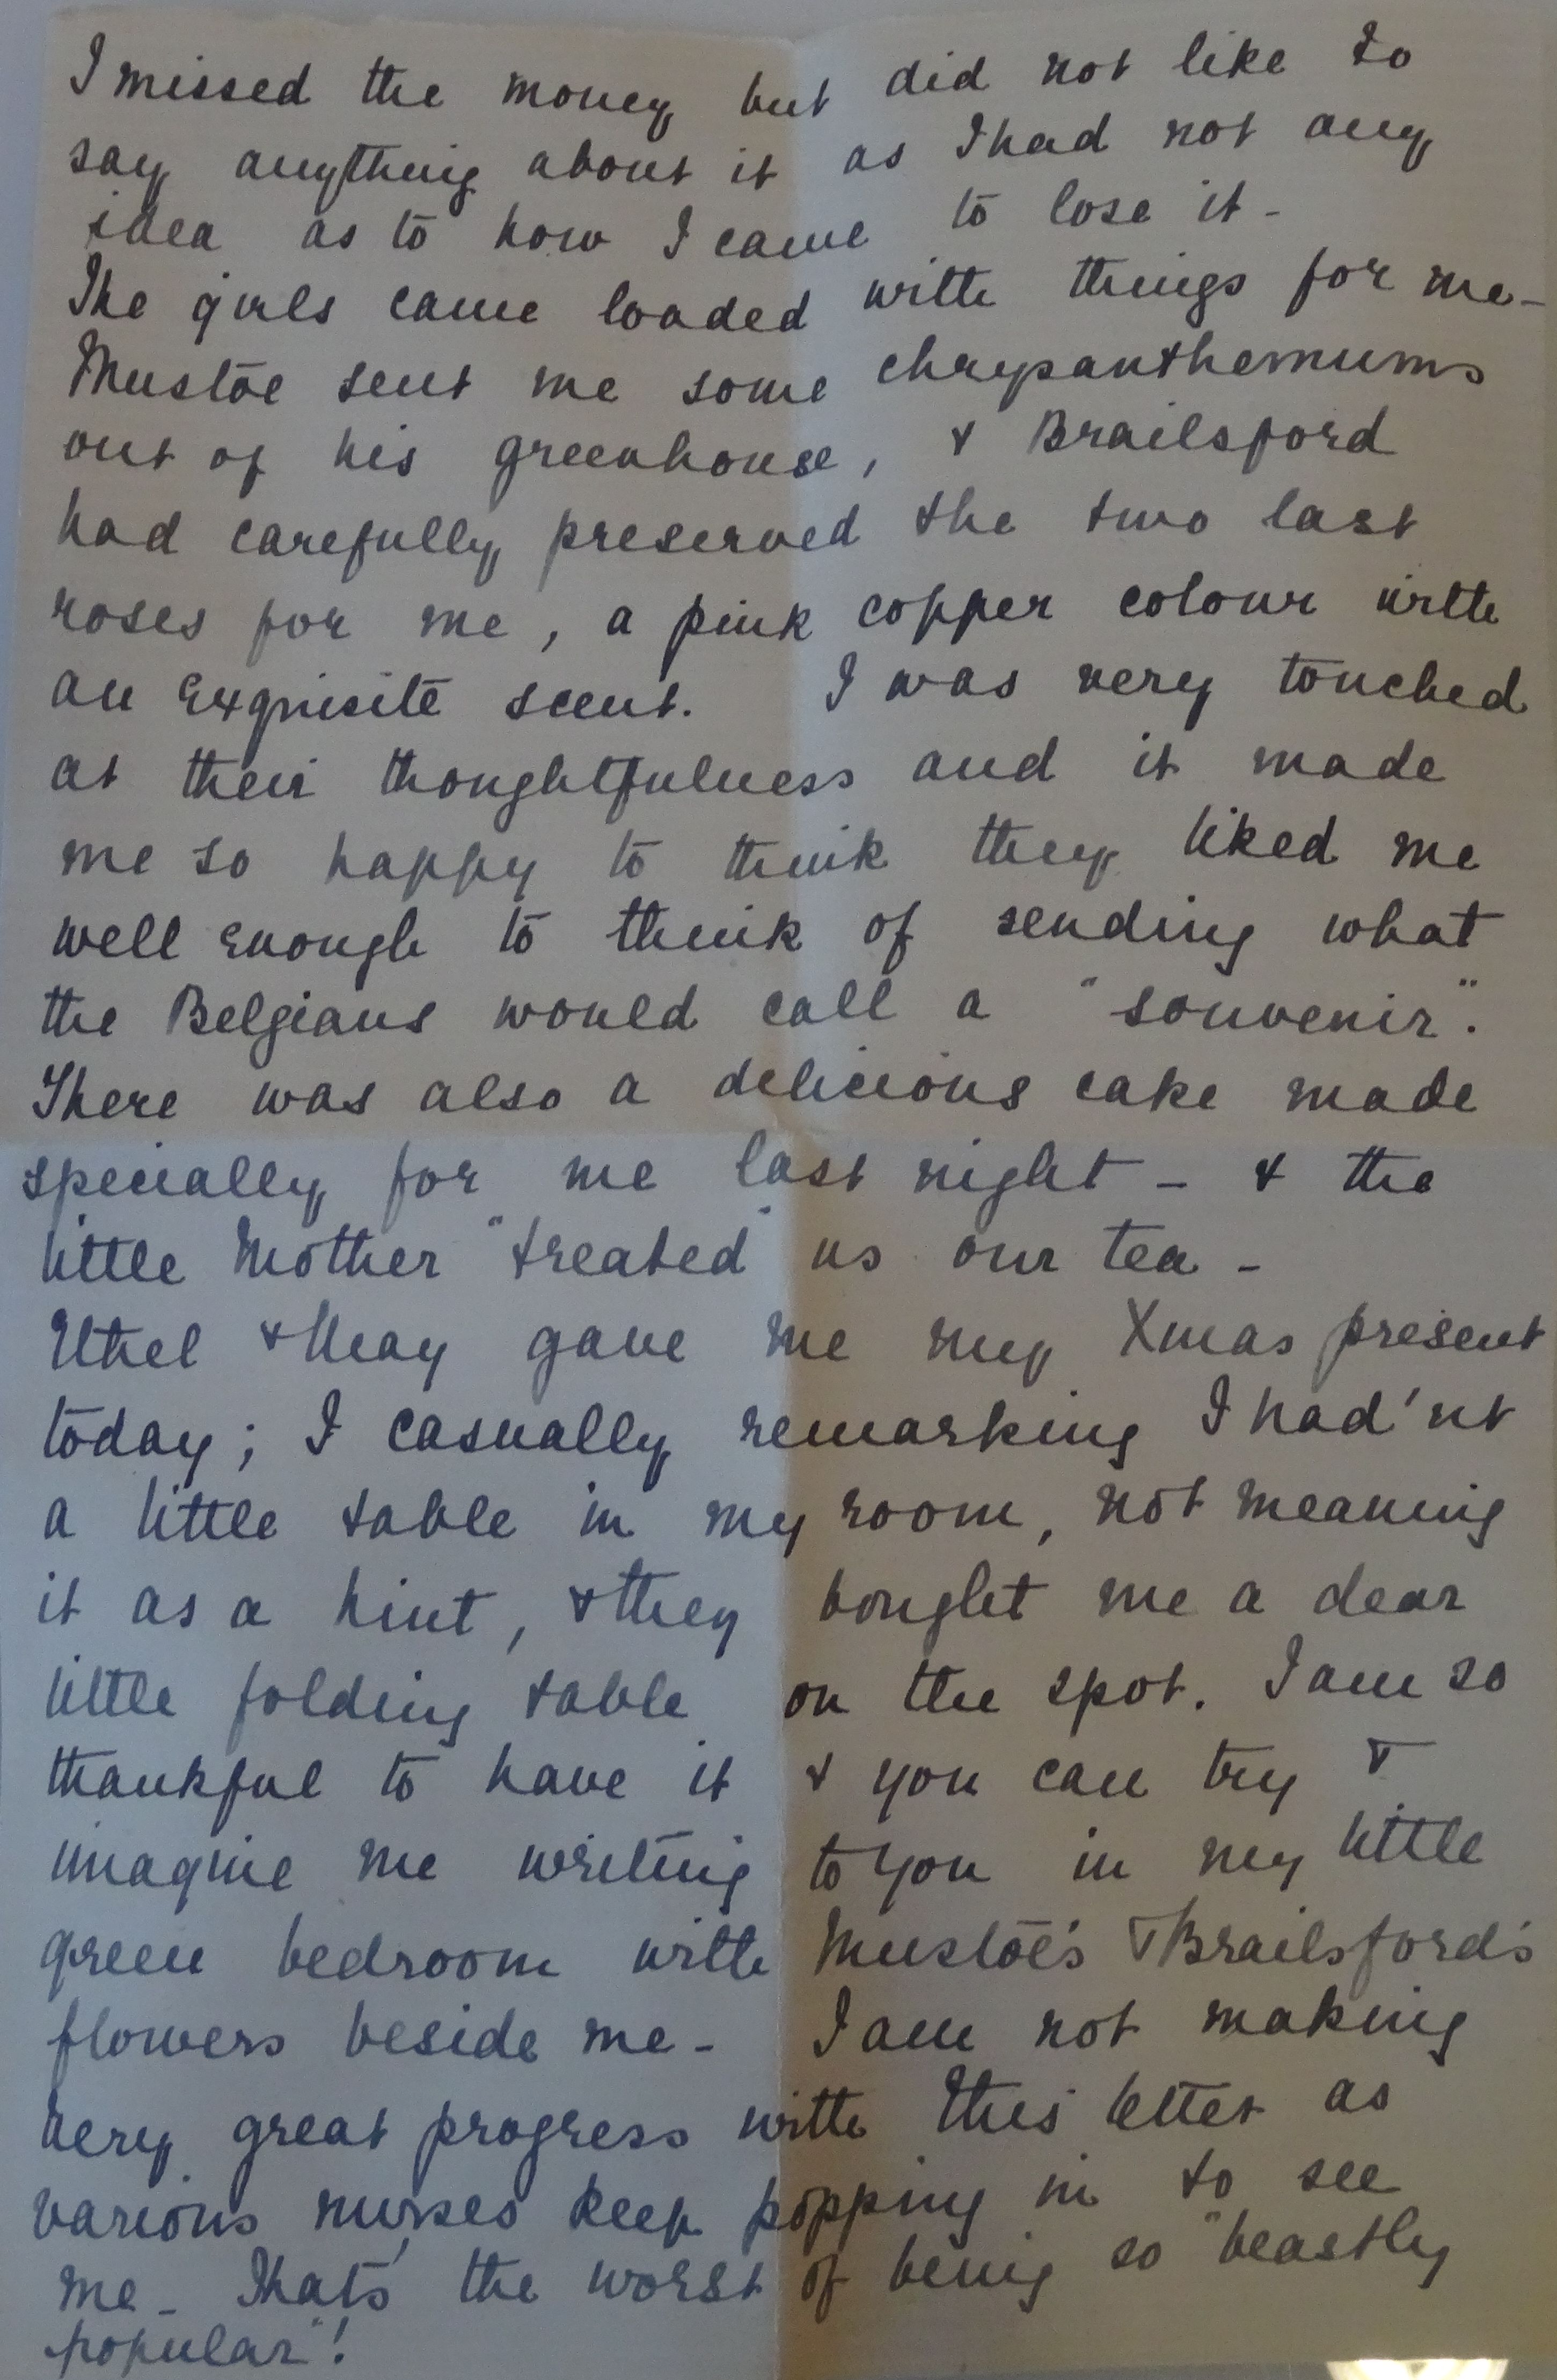 I missed the money but did not like to
say anything about it as I had not any
idea as to how I came to lose it -
The girls came loaded with things for me -
Mustoe sent me some chrysanthemums
out of his greenhouse, & Brailsford
had carefully preserved the two last
roses for me, a pink copper colour with
an exquisite scent. I was very touched
at their thoughtfulness and it made
me so happy to think they liked me
well enough to think of sending what
the Belgians would call a "souvenir".
There was also a delicious cake made
specially for me last night - & the
little Mother "treated" us our tea -
Ethel & May gave me my Xmas present
today; I casually remarking I had'nt
a little table in my room, not meaning
it as a hint, & they bought me a dear
little folding table on the spot. I am so
thankful to have it & you can try &
imagine me writing to you in my little
green bedroom with Mustoe's & Brailsford's
flowers beside me - I am not making
very great progress with this letter as
various nurses keep popping in to see
me - That's the worst of being so "beastly
popular"!